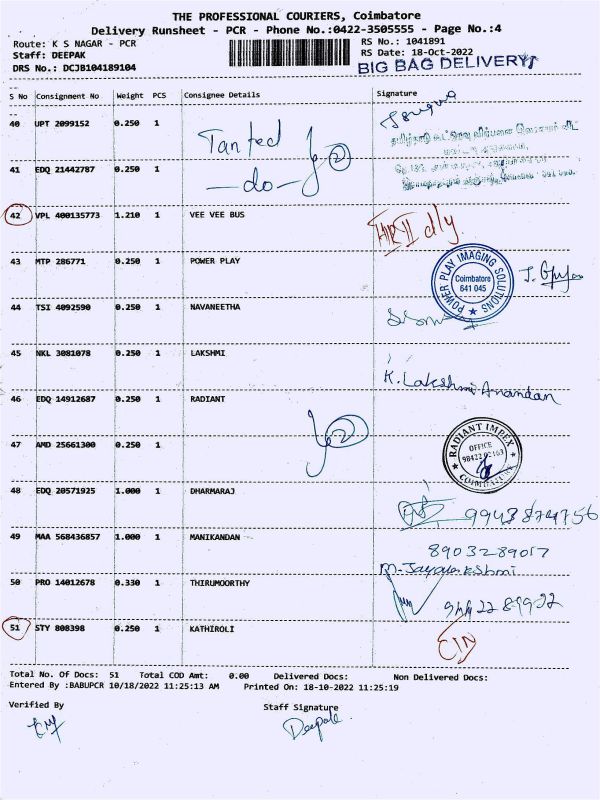 THE PROFESSIONAL COURIERS, Coimbatore
Delivery Runsheet - PCR - Phone No.:0422-3505555 - Page No.:4
Route: K S NAGAR - PCR
RS No.: 1041891
Staff: DEEPAK
RS Date: 18-Oct-2022
DRS No.: DCJB104189104
BIG BAG DELIVERY
S No Consignment No Weight PCS Consignee Details Signature
40 UPT 2099152 0.250 1 Tanted
41 EDQ 21442787 0.250 1 —do—
42 VPL 400135773 1.210 1 VEE VEE BUS dly.
43 MTP 286771 0.250 1 POWER PLAY
POWER PLAY IMAGING SOLUTIONS
Coimbatore
641 045
44 TSI 4092590 0.250 1 NAVANEETHA
45 NKL 3081078 0.250 1 LAKSHMI
K. Lakshmi Anandan
46 EDQ 14912687 0.250 1 RADIANT
RADIANT IMPEX
OFFICE
COIMBATORE
47 AMD 25661300 0.250 1
48 EDQ 20571925 1.000 1 DHARMARAJ
49 MAA 568436857 1.000 1 MANIKANDAN
8903289017
50 PRO 14012678 0.330 1 THIRUMOORTHY
51 STY 808398 0.250 1 KATHIROLI
Total No. Of Docs: 51 Total COD Amt: 0.00 Delivered Docs: Non Delivered Docs:
Entered By :BABUPCR 10/18/2022 11:25:13 AM Printed On: 18-10-2022 11:25:19
Verified By
Staff Signature
Deepak